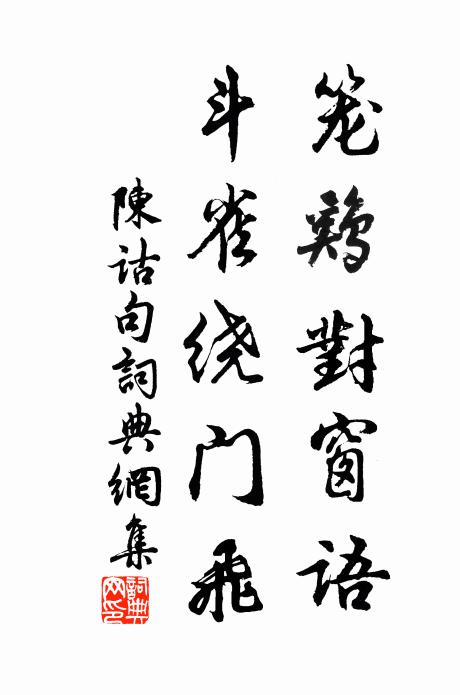 笼鷄對窗語
斗雀绕门飛
陳詁句詞典網集
詞典網印